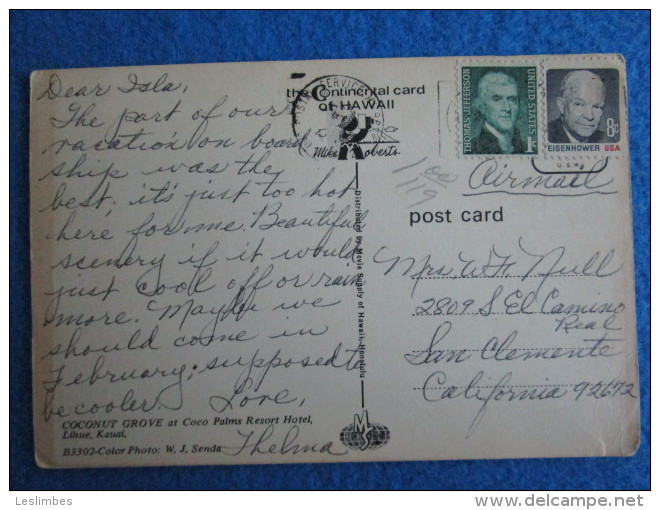 Dear Isla,
The part of our
vacation on board
ship was the
best, it's just too hot
here for me. Beautiful
scenery if it would
just cool off or rain
more. Maybe we
should come in
February; supposed to
be cooler. Love,
Thelma
COCONUT GROVE at Coco Palms Resort Hotel,
Lihue, Kauai.
B3302-Color Photo: W. J. Senda
the Continental card
of HAWAII
Mike Roberts
Distributed by Movie Supply of Hawaii-Honolulu
THOMAS JEFFERSON
UNITED STATES
1¢
8¢
EISENHOWER USA
Airmail
post card
Mrs. W. H. Null
2809 S El Camino
Real
San Clemente
California 92672
Leslimbes
delcampe.net